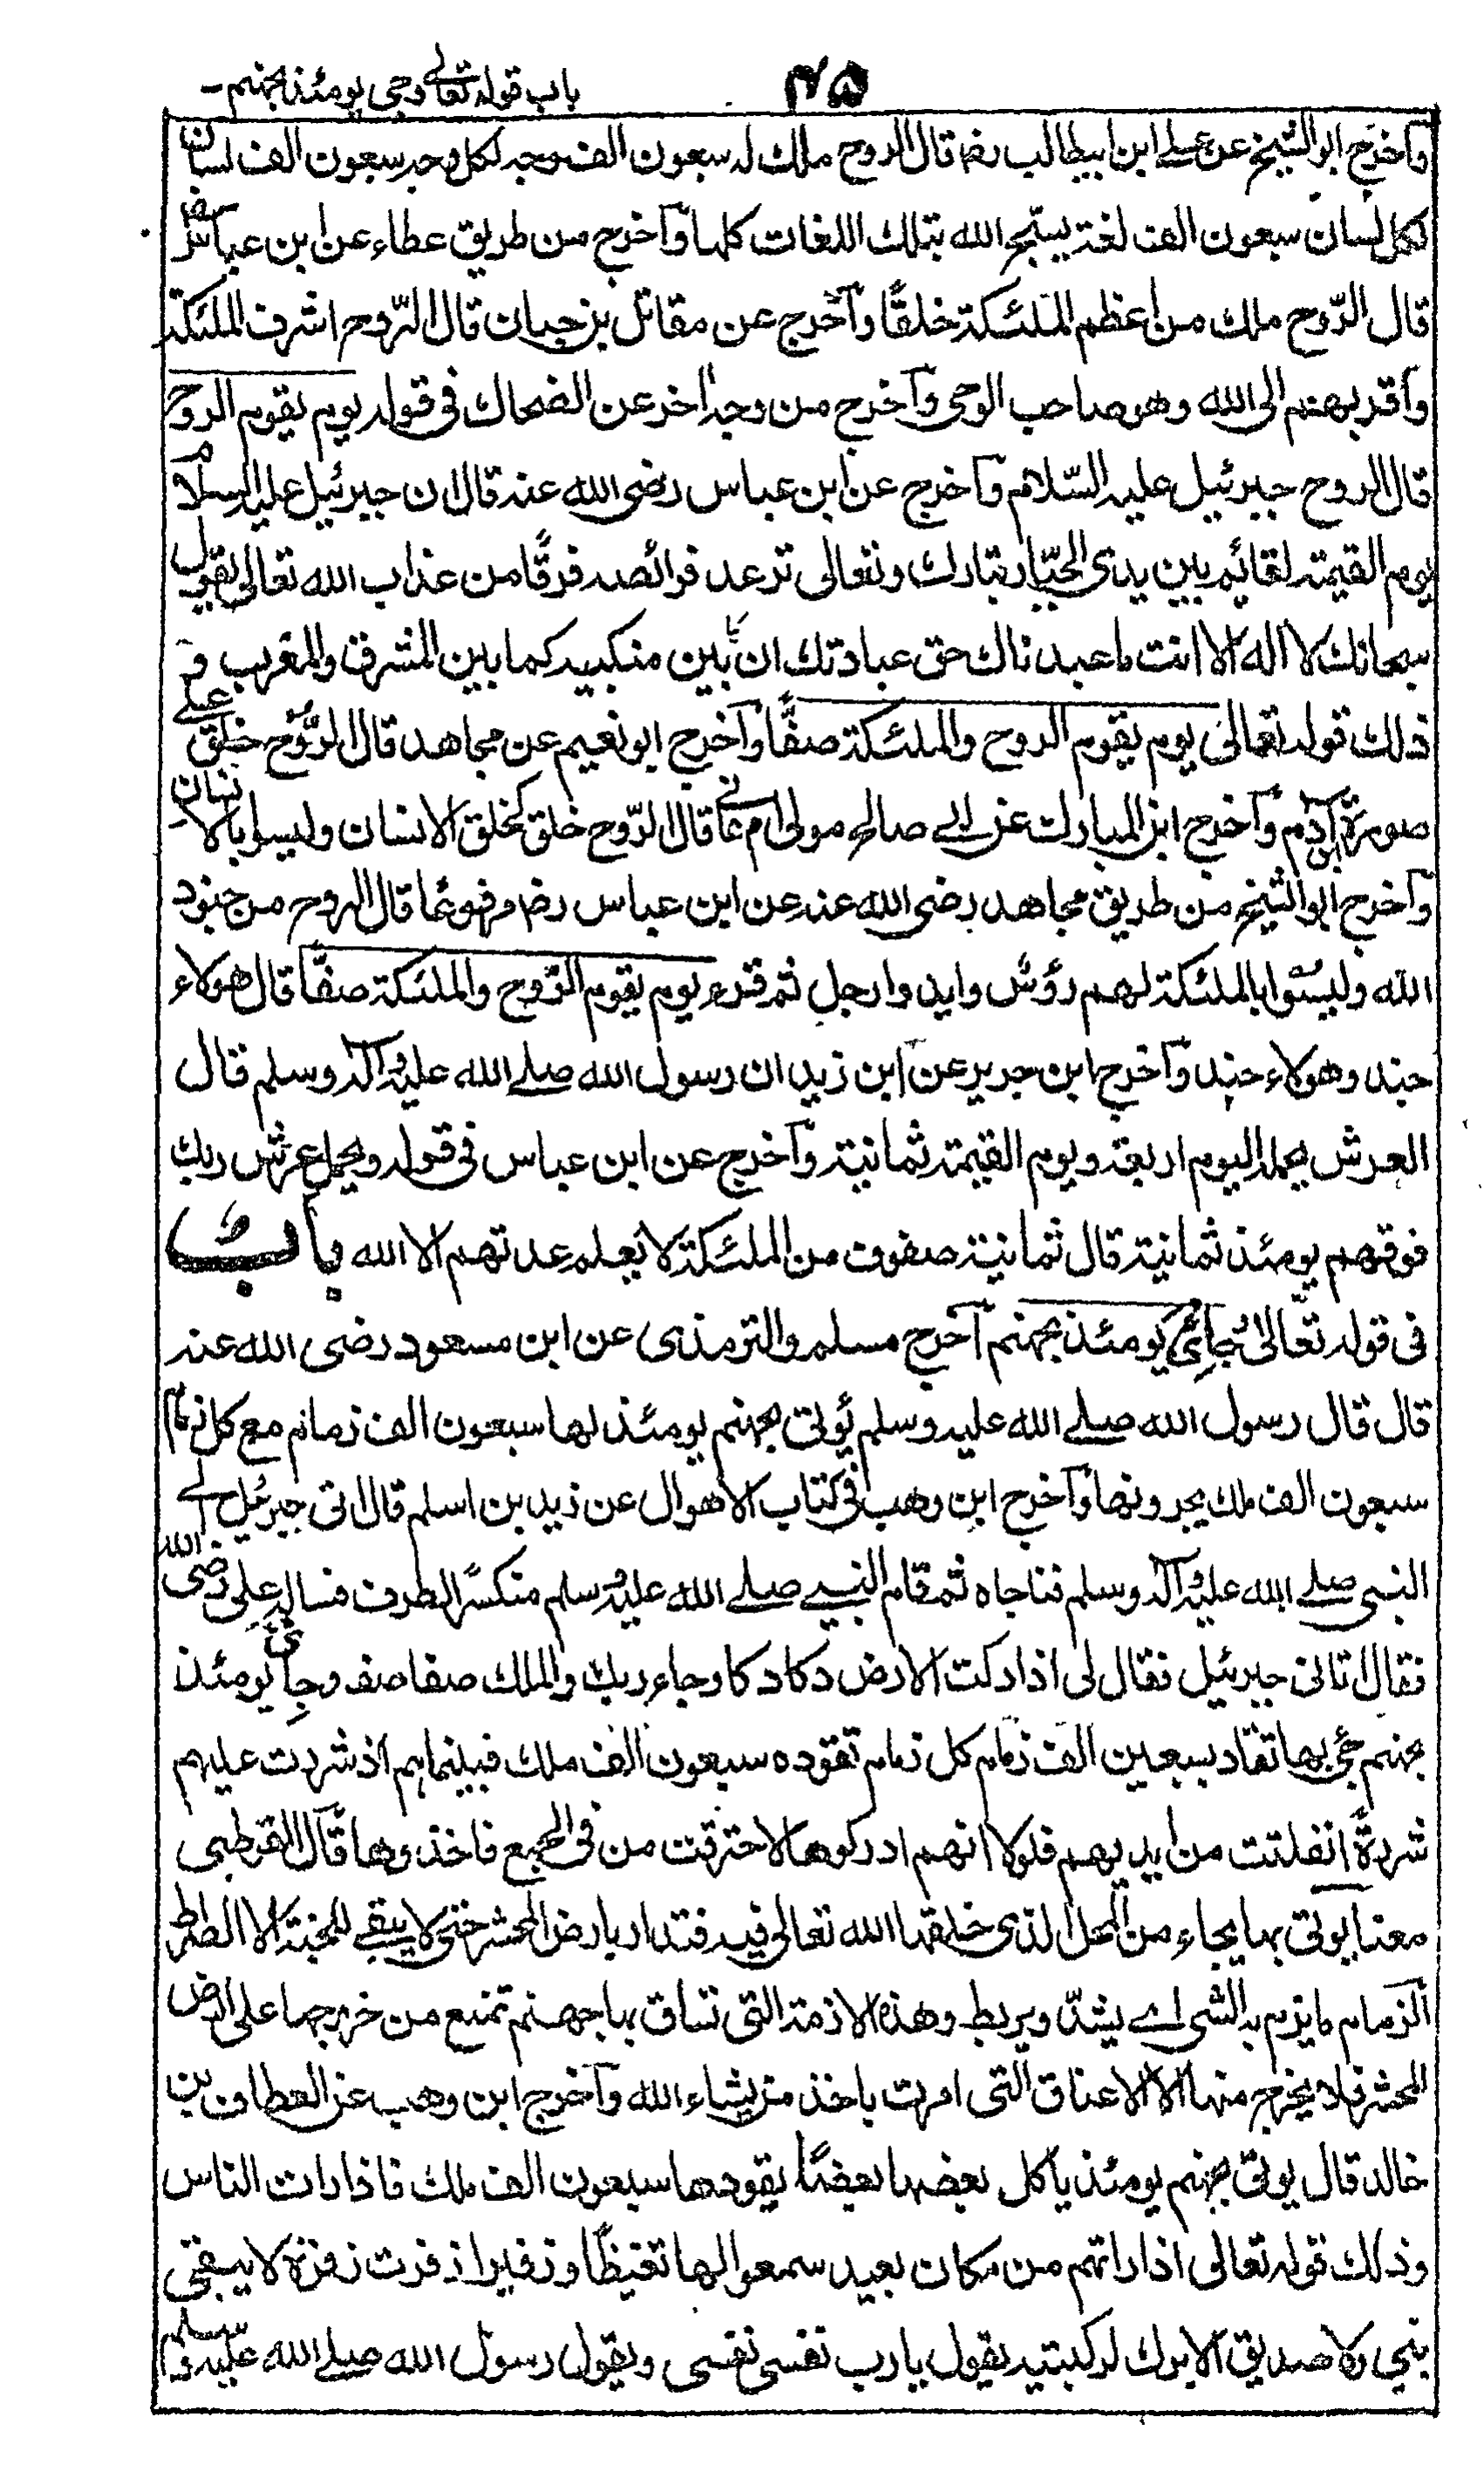 ۴۵
باب قوله تعالے وجی یومئذ بجهنم -
وآخرج ابو الشيخ عن علے ابن ابیطالب رضہ قال الروح ملك له سبعون الف وجہ لكل وجہ سبعون الف لسان
لكل لسان سبعون الف لغة يسبّح الله بتلك اللغات كلها وآخرج من طريق عطاء عن ابن عباس رضہ
قال الرّوح ملك من اعظم الملئكة خلقًا وآخرج عن مقاتل بن حبان قال الرّوح اشرف الملئكة
وآقربهم الى الله وهو صاحب الوحى وآخرج من وجه اخر عن الضحاك فى قوله يوم يقوم الروح
قال الروح جبرئيل عليه السّلام وآخرج عن ابن عباس رضى الله عنه قال ان جبرئيل عليه السلام
يوم القيمة لقائم بين يدى الجبّار تبارك وتعالى ترعد فرائصه فرقًا من عذاب الله تعالى يقول
سبحانك لا اله الا انت ما عبدناك حق عبادتك ان ما بين منكبيه كما بين المشرق والمغرب و
ذلك قوله تعالى يوم يقوم الروح والملئكة صفًّا وآخرج ابو نعيم عن مجاهد قال الرُّوح خلق علے
صورة ابن آدم وآخرج ابن المبارك عن ابے صالح مولى ام هانے قال الرّوح خلق كخلق الانسان وليسوا بالانسان
وآخرج ابو الشيخ من طريق مجاهد رضى الله عنه عن ابن عباس رضہ مرفوعًا قال الروح من جنود
الله وليسُوا بالملئكة لهم رؤس وايد وارجل ثم قرء يوم يقوم الرّوح والملئكة صفًّا قال هولاء
جند وهولاء جند وآخرج ابن جرير عن ابن زيد ان رسول الله صلے الله عليه وآله وسلم قال
العرش يحمله اليوم اربعة ويوم القيمة ثمانية وآخرج عن ابن عباس فى قوله ويحمل عرش ربك
فوقهم يومئذ ثمانية قال ثمانية صفوف من الملئكة لا يعلم عدتهم الا الله باب
فى قوله تعالى وجائ يومئذ بجهنم آخرج مسلم والترمذى عن ابن مسعود رضى الله عنه
قال قال رسول الله صلے الله عليه وسلم يُوتى بجهنم يومئذ لها سبعون الف زمام مع كل زمام
سبعون الف ملك يجرونها وآخرج ابن وهب فى كتاب الاهوال عن زيد بن اسلم قال اتى جبرئيل الے
النبى صلے الله عليه وآله وسلم فناجاه ثم قام النبے صلے الله عليه وسلم منكسّ الطرف فساله على رضى الله
فقال اتانى جبرئيل فقال لى اذا دكت الارض دكا دكا وجاء ربك والملك صفا صفا وجائ يومئذ
بجهنم جئ بها تقاد بسبعين الف زمام كل زمام تقوده سبعون الف ملك فبينما هم اذ شردت عليهم
شردةً انفلتت من ايديهم فلولا انهم ادركوها لاحترقت من فى الجمع فاخذوها قآل القرطبى
معنا يوتى بها يجاء من المحل الذى خلقها الله تعالى فيه فتدار بارض المحشر حتى لا يبقے للجنة الا الصراط
آلزمام ما يزم به الشى اے يشدّ ويربط وهذه الازمة التى تساق بها جهنم تمنع من خروجها على ارض
المحشر فلا يخرج منها الا الاعناق التى امرت باخذ من يشاء الله وآخرج ابن وهب عن العطاف بن
خالد قال يوتى بجهنم يومئذ ياكل بعضها بعضًا يقودها سبعون الف ملك فاذا رات الناس
وذلك قوله تعالى اذا راتهم من مكان بعيد سمعوا لها تغيظًا وزفيرا زفرت زفرة لا يبقى
نبى ولا صديق الا برك لركبتيه يقول يا رب نفسى نفسى ويقول رسول الله صلے الله عليه وسلم